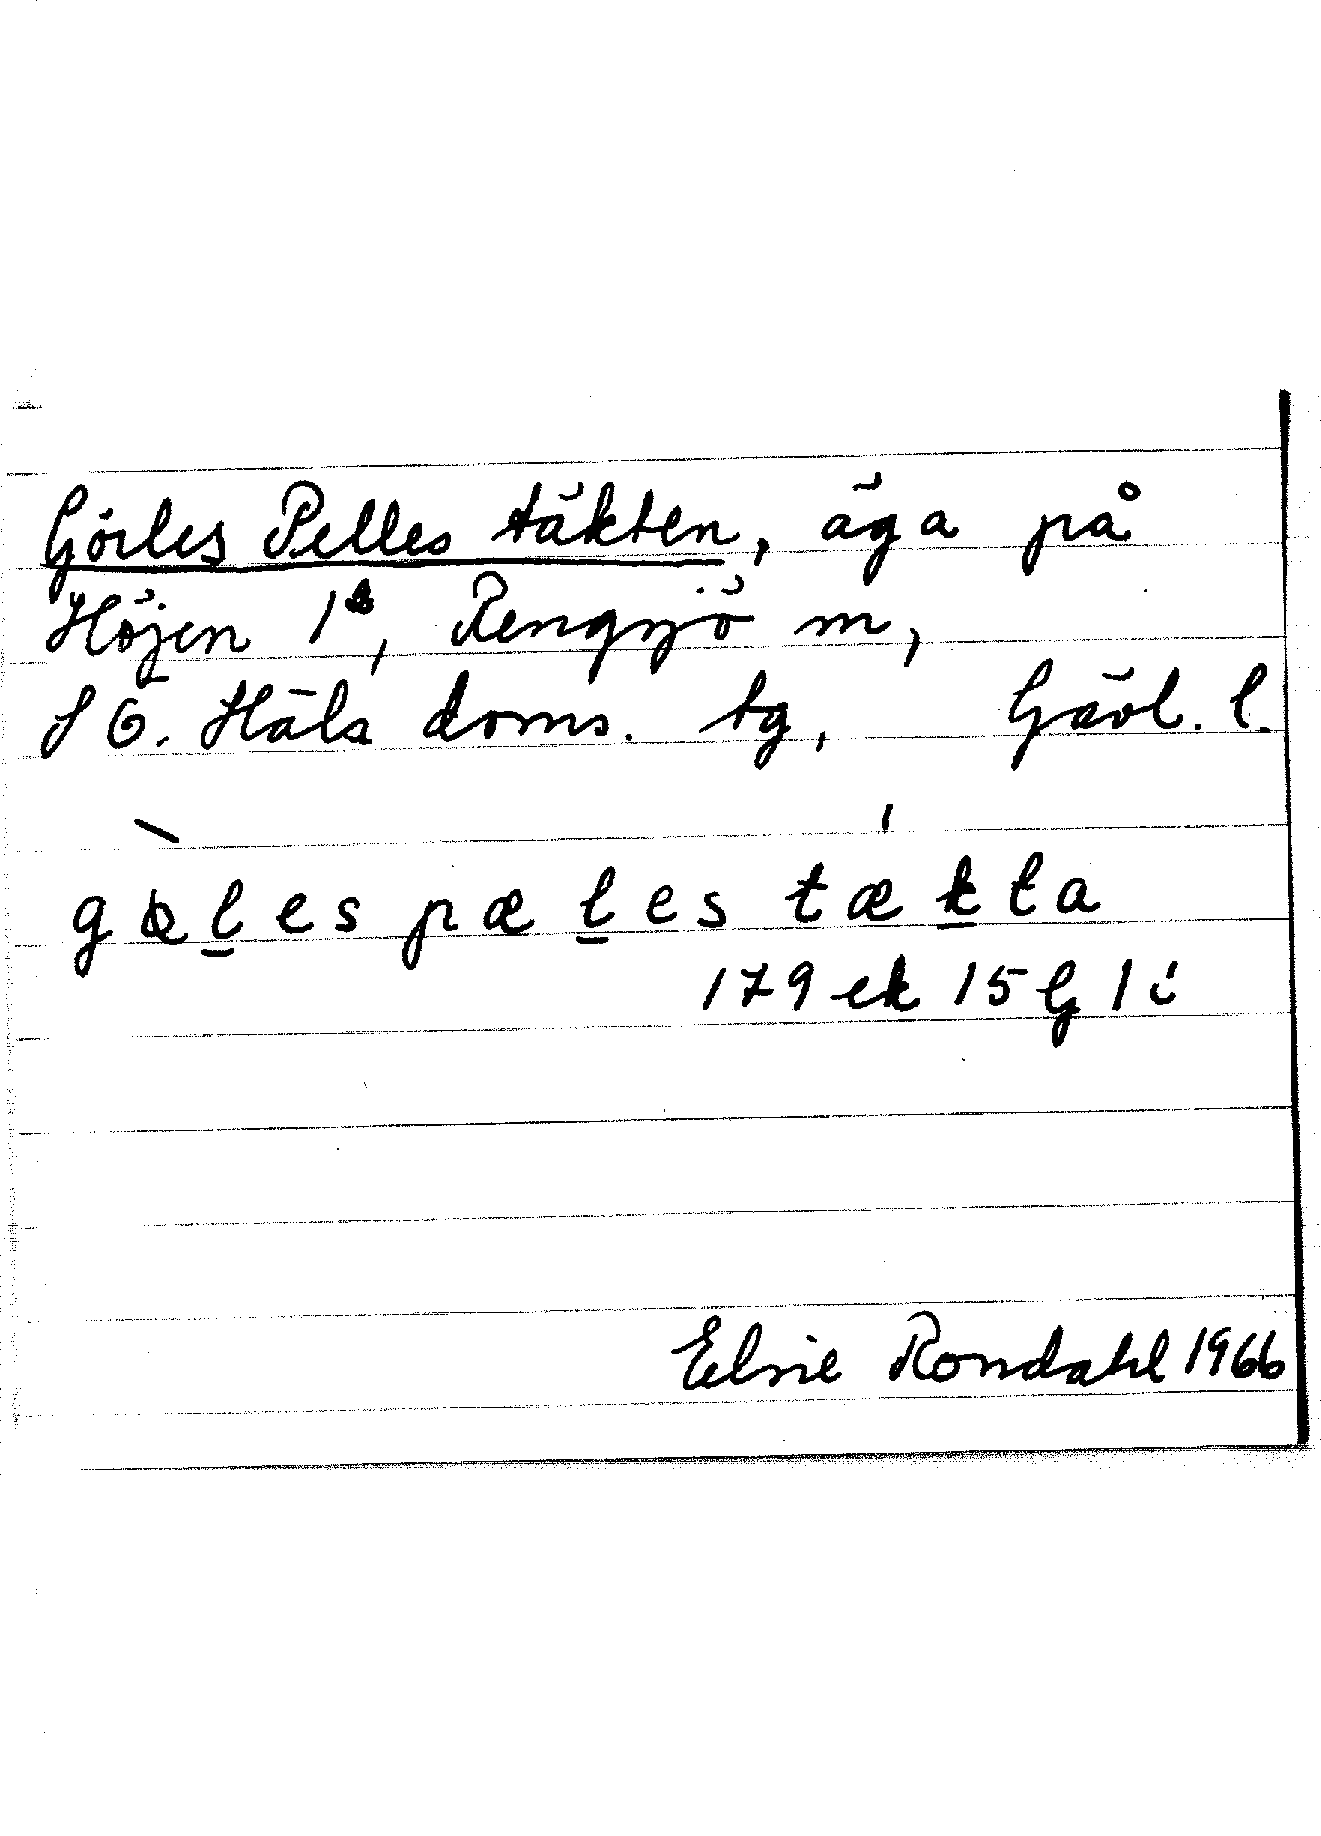 Görles Pelles täkten, äga på
Höjen 1⁴, Rengsjö sn,
S Ö. Häls doms. tg, Gävl. l.
gœles pæles tækta
179 ek 15 G 1 i
Elsie Rondahl 1966